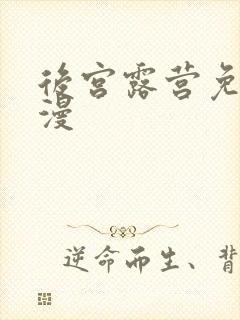 後宫露营免
漫
逆命而生、背